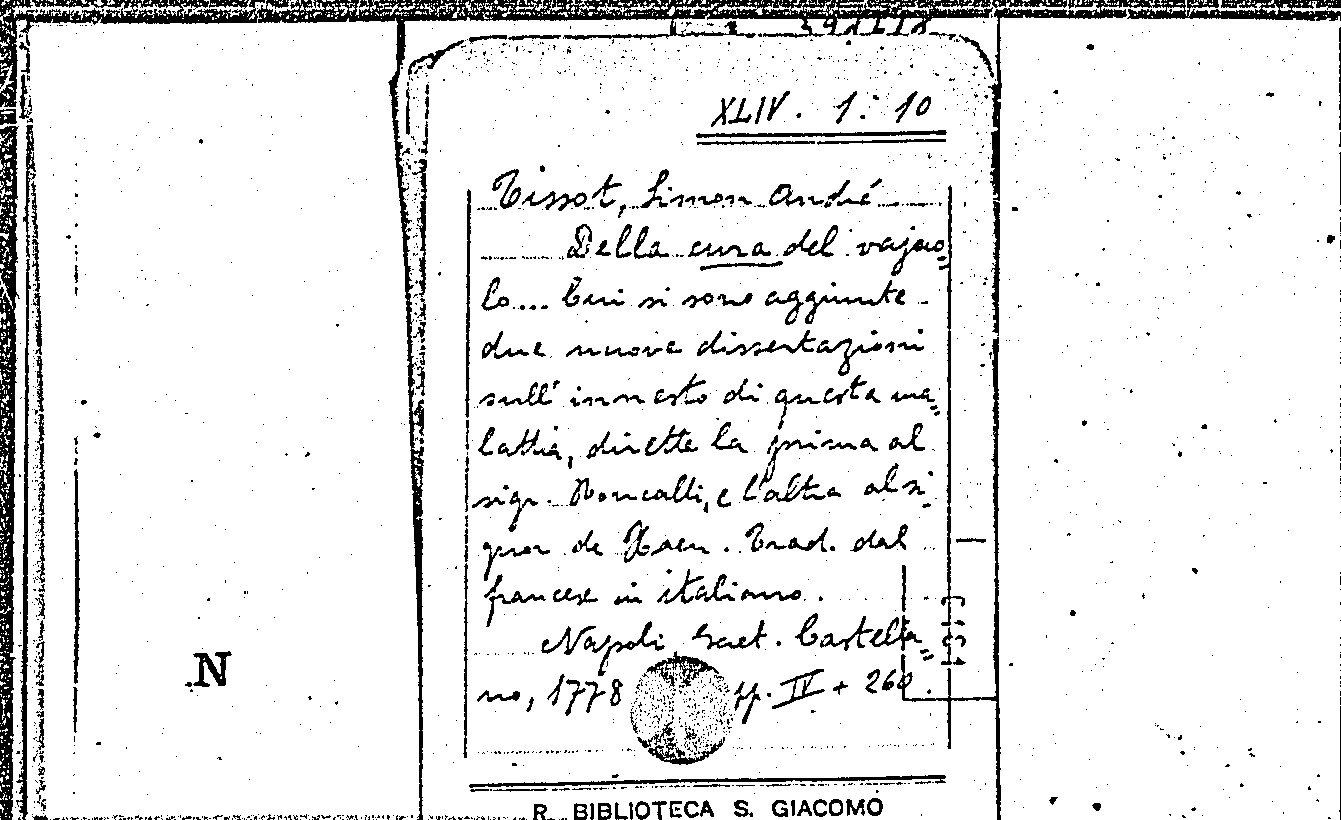 XLIV. 1: 10
Tissot, Simon André
Della cura del vajuo=
lo... Cui si sono aggiunte
due nuove dissertazioni
sull' innesto di questa ma=
lattia, dirette la prima al
sigr. Roncalli, e l'altra al si=
gnor de Haen. Trad. dal
francese in italiano.
Napoli, Gaet. Castella=
no, 1778 pp. IV + 260.
N
R. BIBLIOTECA S. GIACOMO